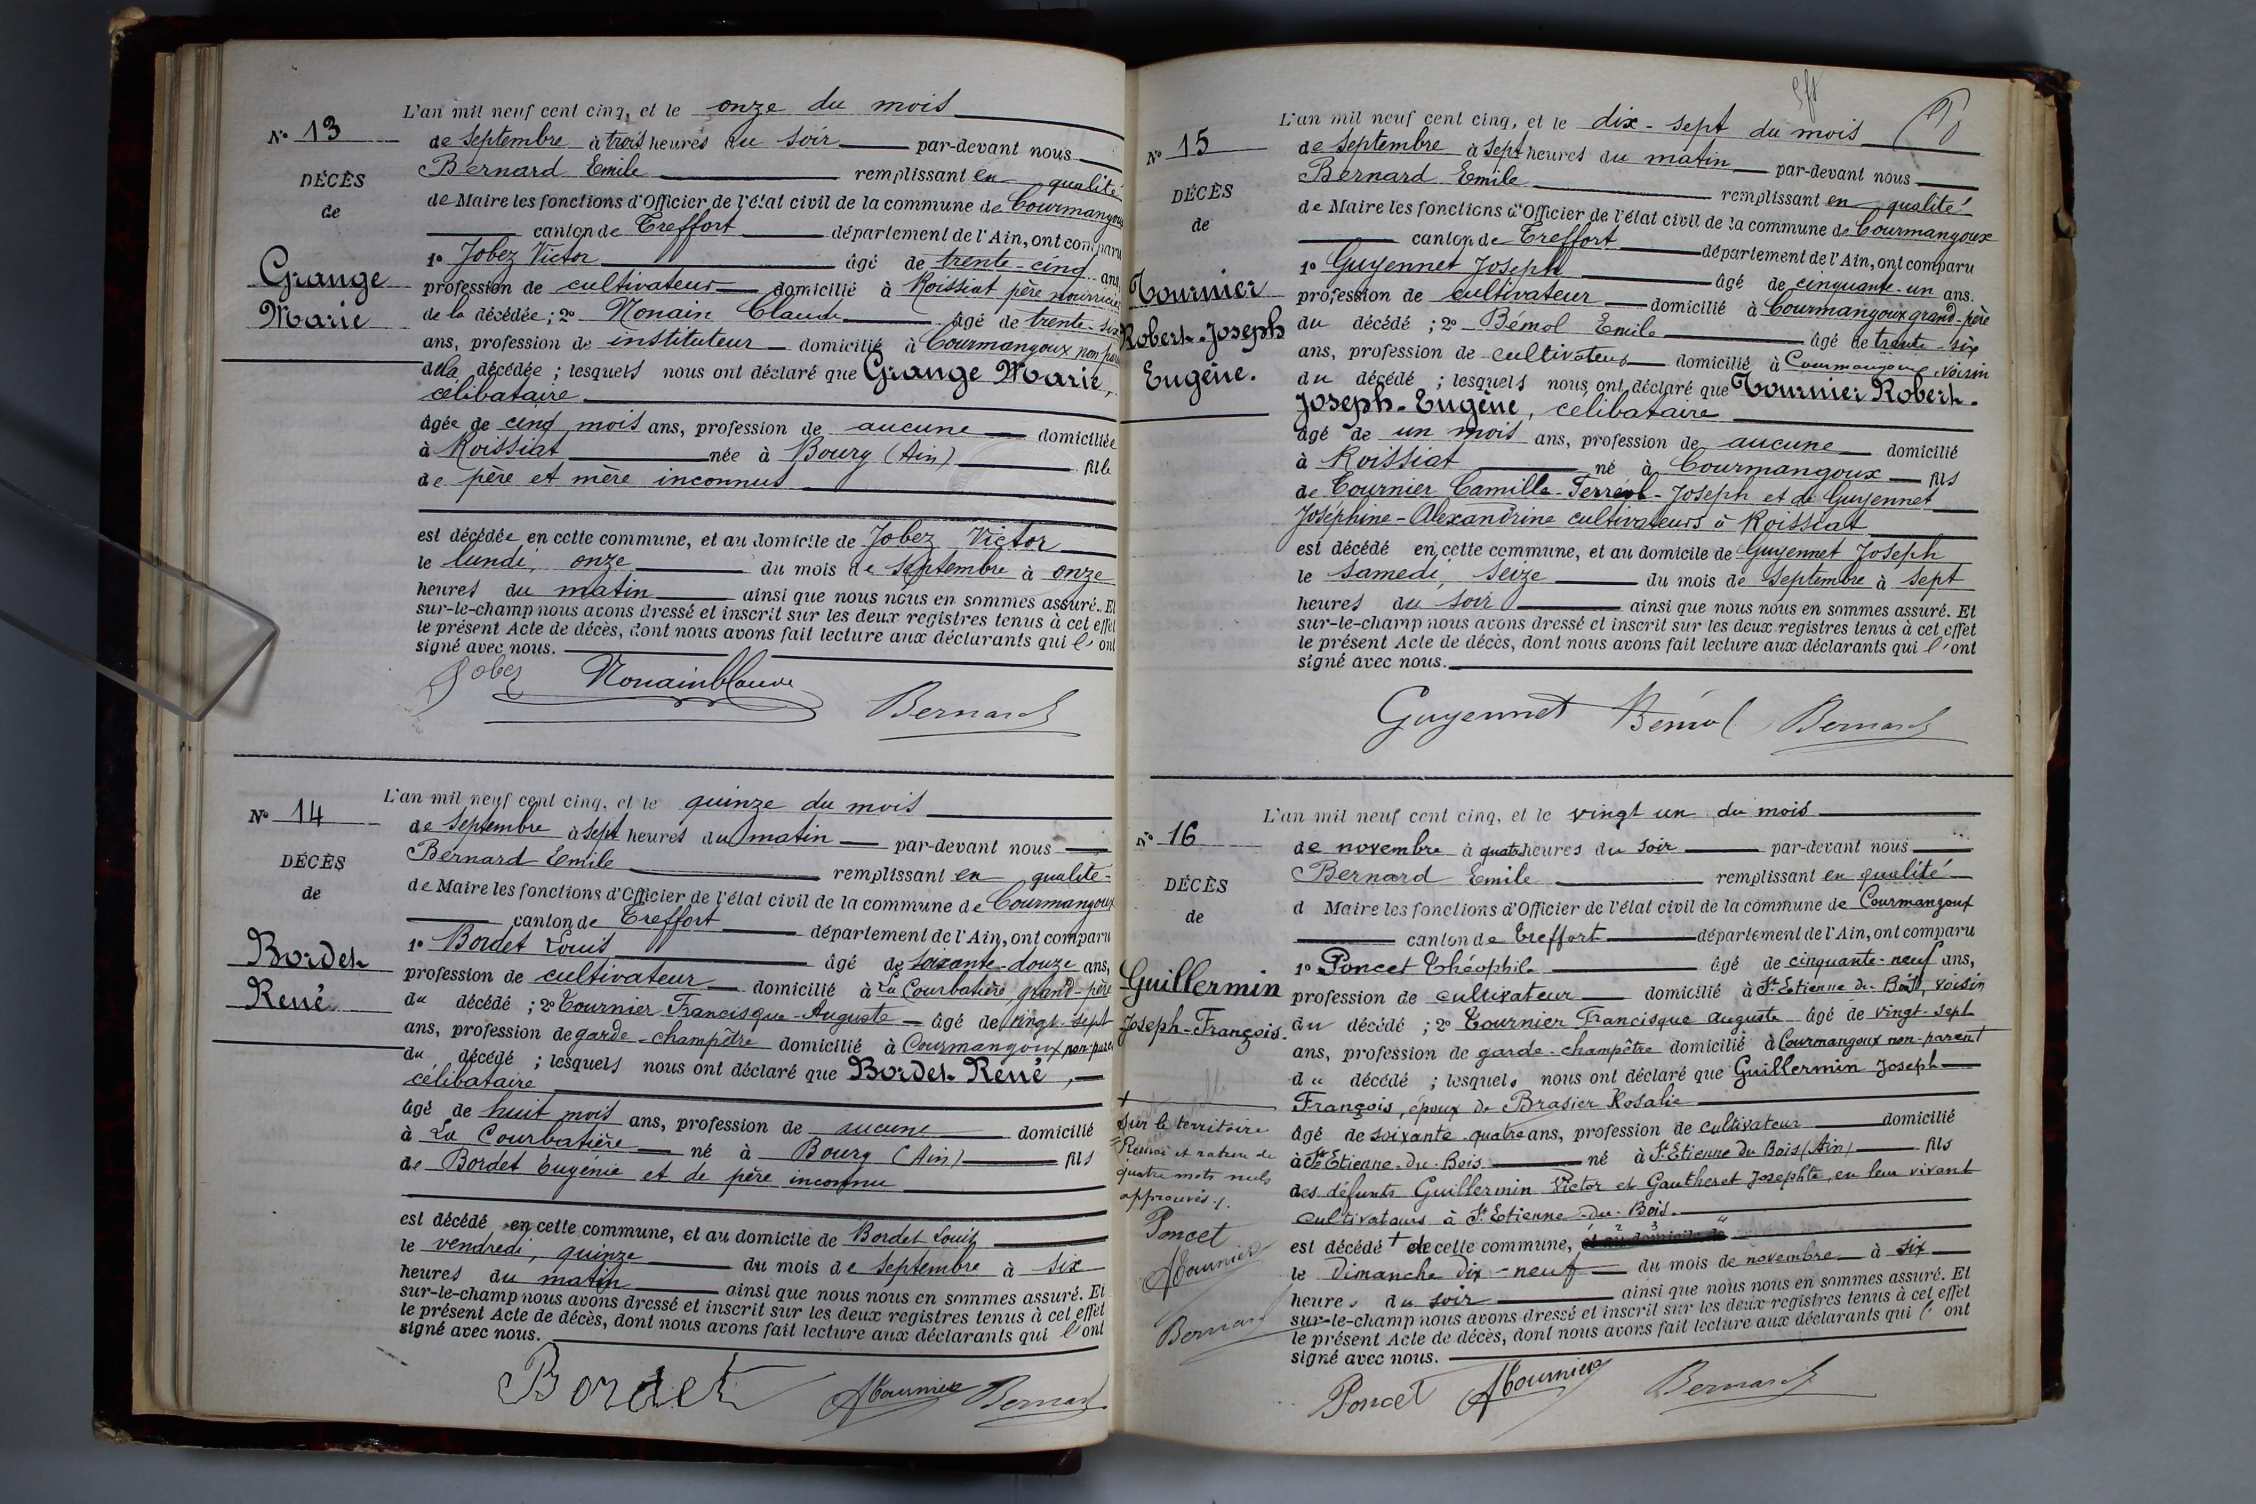 N° 13
DÉCÈS
de
Grange
Marie
L'an mil neuf cent cinq, et le onze du mois
de septembre à trois heures du soir par-devant nous
Bernard Emile remplissant en qualité
de Maire les fonctions d'Officier de l'état civil de la commune de Courmangoux
canton de Treffort département de l'Ain, ont comparu
1° Jobez Victor âgé de trente-cinq ans,
profession de cultivateur domicilié à Roissiat père nourricier
de la décédée ; 2° Nonain Claude âgé de trente-six
ans, profession de instituteur domicilié à Courmangoux non parent
de la décédée ; lesquels nous ont déclaré que Grange Marie,
célibataire
âgée de cinq mois ans, profession de aucune domiciliée
à Roissiat née à Bourg (Ain) fille
de père et mère inconnus
est décédée en cette commune, et au domicile de Jobez Victor
le lundi, onze du mois de septembre à onze
heures du matin ainsi que nous nous en sommes assuré. Et
sur-le-champ nous avons dressé et inscrit sur les deux registres tenus à cet effet
le présent Acte de décès, dont nous avons fait lecture aux déclarants qui l'ont
signé avec nous.
Jobez Nonain Claude
Bernard
N° 14
DÉCÈS
de
Bordet
René
L'an mil neuf cent cinq, et le quinze du mois
de septembre à sept heures du matin par-devant nous
Bernard Emile remplissant en qualité
de Maire les fonctions d'Officier de l'état civil de la commune de Courmangoux
canton de Treffort département de l'Ain, ont comparu
1° Bordet Louis âgé de soixante-douze ans,
profession de cultivateur domicilié à La Courbatière, grand-père
du décédé ; 2° Tournier Francisque-Auguste âgé de vingt-sept
ans, profession de garde-champêtre domicilié à Courmangoux non-parent
du décédé ; lesquels nous ont déclaré que Bordet René,
célibataire
âgé de huit mois ans, profession de aucune domicilié
à La Courbatière né à Bourg (Ain) fils
de Bordet Eugénie et de père inconnu
est décédé en cette commune, et au domicile de Bordet Louis
le vendredi, quinze du mois de septembre à six
heures du matin ainsi que nous nous en sommes assuré. Et
sur-le-champ nous avons dressé et inscrit sur les deux registres tenus à cet effet
le présent Acte de décès, dont nous avons fait lecture aux déclarants qui l'ont
signé avec nous.
Bordet ATournier Bernard
N° 15
DÉCÈS
de
Tournier
Robert-Joseph
Eugène.
L'an mil neuf cent cinq, et le dix-sept du mois
de septembre à sept heures du matin par-devant nous
Bernard Emile remplissant en qualité
de Maire les fonctions d'Officier de l'état civil de la commune de Courmangoux
canton de Treffort département de l'Ain, ont comparu
1° Guyennet Joseph âgé de cinquante-un ans.
profession de cultivateur domicilié à Courmangoux grand-père
du décédé ; 2° Bémol Emile âgé de trente-six
ans, profession de cultivateur domicilié à Courmangoux, voisin
du décédé ; lesquels nous ont déclaré que Tournier Robert-
Joseph-Eugène, célibataire
âgé de un mois ans, profession de aucune domicilié
à Roissiat né à Courmangoux fils
de Tournier Camille-Joseph et de Guyennet
Joséphine-Alexandrine cultivateurs à Roissiat
est décédé en cette commune, et au domicile de Guyennet Joseph
le samedi, seize du mois de septembre à sept
heures du soir ainsi que nous nous en sommes assuré. Et
sur-le-champ nous avons dressé et inscrit sur les deux registres tenus à cet effet
le présent Acte de décès, dont nous avons fait lecture aux déclarants qui l'ont
signé avec nous.
Guyennet Bémol Bernard
N° 16
DÉCÈS
de
Guillermin
Joseph-François.
+
Sur le territoire
Renvoi et rature de
quatre mots nuls
approuvés ./.
Poncet
ATournier
Bernard
L'an mil neuf cent cinq, et le vingt un du mois
de novembre à quatre heures du soir par-devant nous
Bernard Emile remplissant en qualité
d Maire les fonctions d'Officier de l'état civil de la commune de Courmangoux
canton de Treffort département de l'Ain, ont comparu
1° Poncet Théophile âgé de cinquante-neuf ans,
profession de cultivateur domicilié à St Etienne du Bois, voisin
du décédé ; 2° Tournier Francisque Auguste âgé de vingt-sept
ans, profession de garde-champêtre domicilié à Courmangoux non-parent
du décédé ; lesquels nous ont déclaré que Guillermin Joseph
François, époux de Brasier Rosalie
âgé de soixante-quatre ans, profession de cultivateur domicilié
à St Etienne-du-Bois né à St Etienne du Bois (Ain) fils
des défunts Guillermin Victor et Gautheret Josephte, en leur vivant
cultivateurs à St Etienne-du-Bois.
est décédé + de cette commune, et au domicile de
le Dimanche dix-neuf du mois de novembre à six
heures du soir ainsi que nous nous en sommes assuré. Et
sur-le-champ nous avons dressé et inscrit sur les deux registres tenus à cet effet
le présent Acte de décès, dont nous avons fait lecture aux déclarants qui l'ont
signé avec nous.
Poncet ATournier Bernard